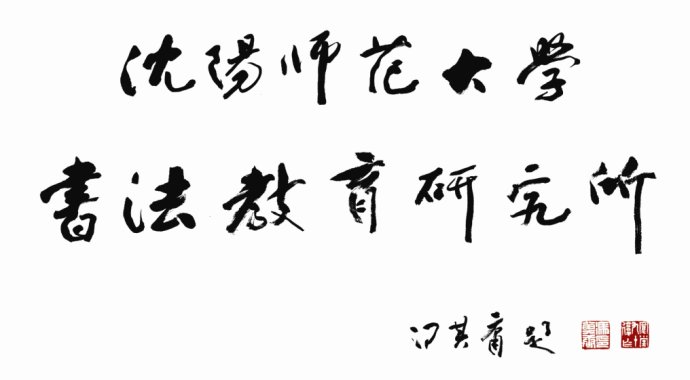 沈陽师范大學
書法教育研究所
冯其庸题